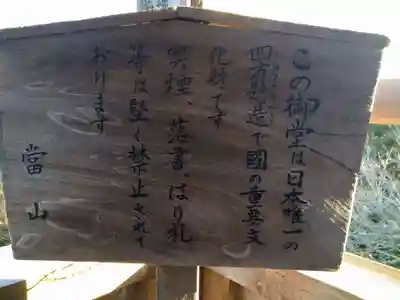 この御堂は日本唯一の
四方懸造で国の重要文
化財です
喫煙、落書、はり札
等は堅く禁止されて
おります
當山